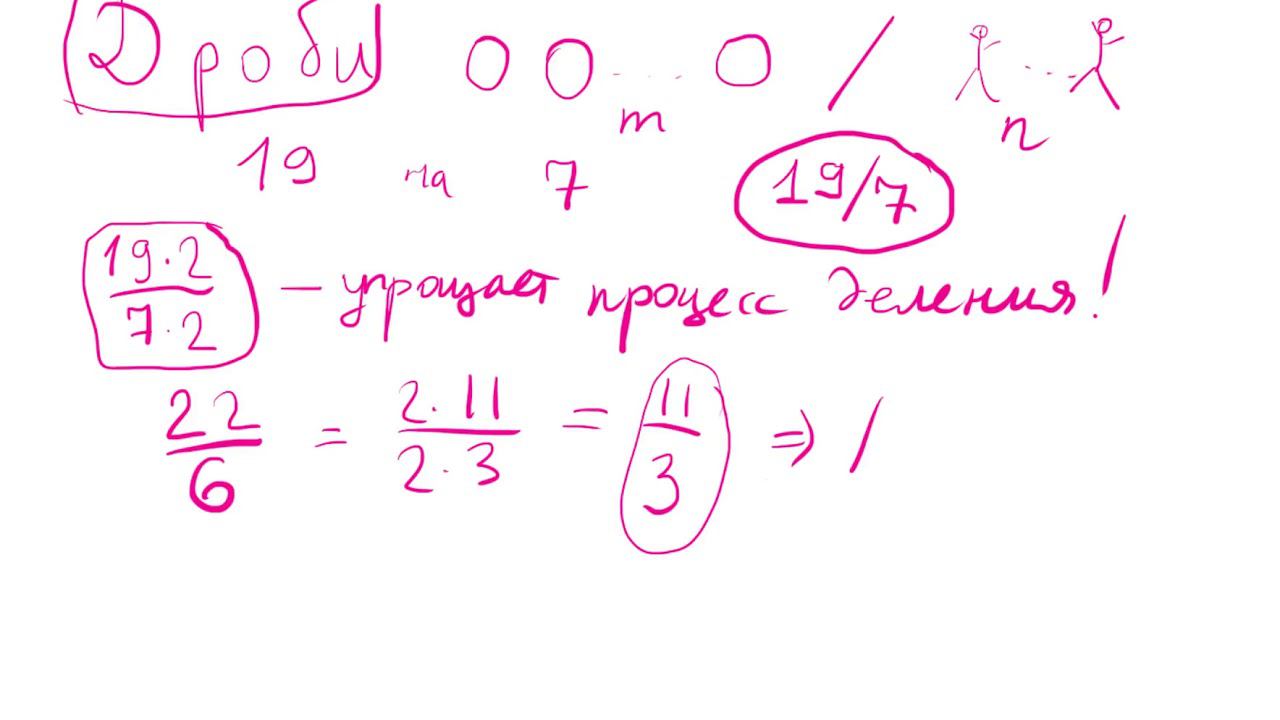 Дроби 0 0 ... 0 /
m n
19 на 7 19/7
19·2/7·2 — упрощает процесс деления!
22/6 = 2·11/2·3 = 11/3 ⇒ /